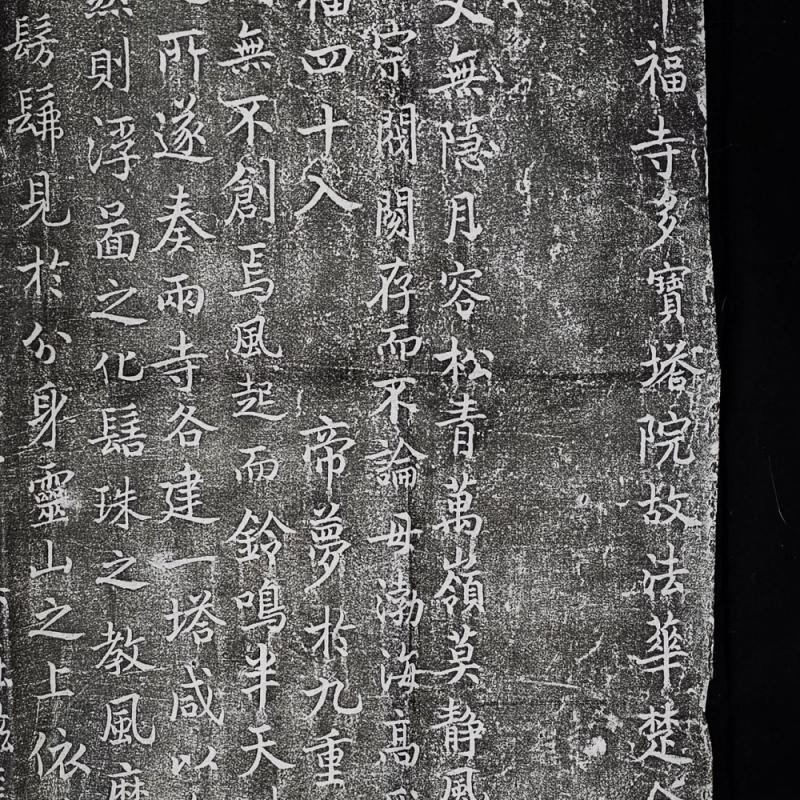 千福寺多寶塔院故法華楚
文無隱月容松青萬嶺莫静風
宗閥閱存而不論母渤海高
福四十入帝夢於九重
無不創焉風起而鈴鳴半天
所遂奏兩寺各建一塔咸以
然則浮啚之化髻珠之教風
髣髴見於分身靈山之上依